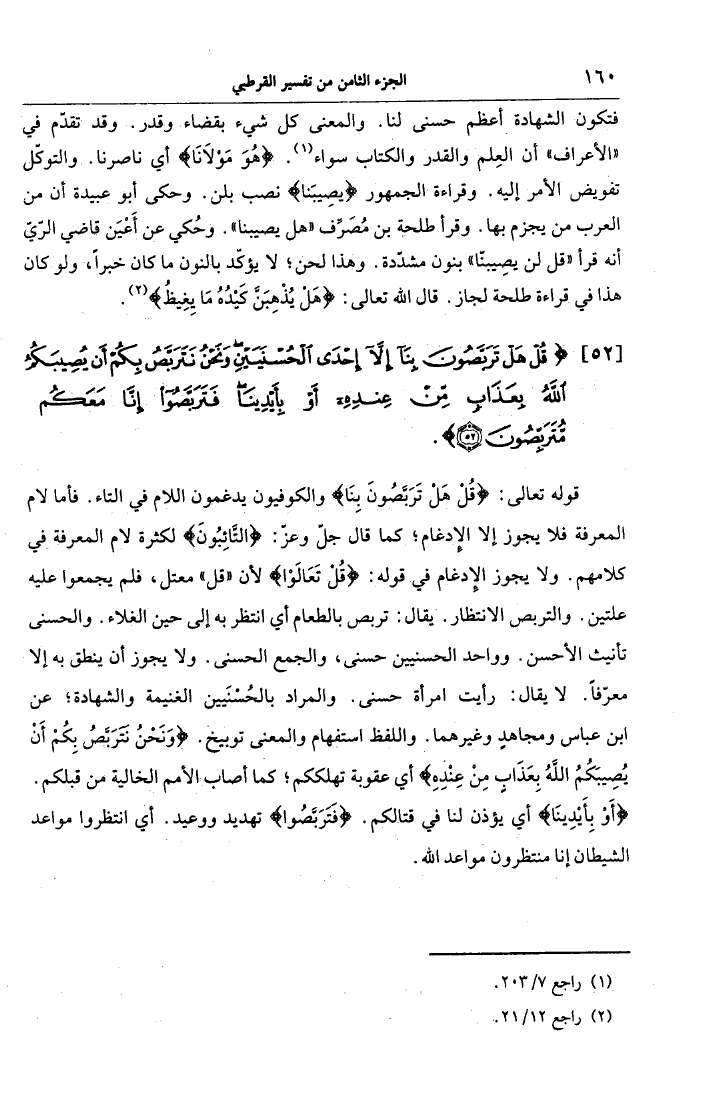 ١٦٠ الجزء الثامن من تفسير القرطبي
فتكون الشهادة أعظم حسنى لنا. والمعنى كل شيء بقضاء وقدر. وقد تقدّم في
«الأعراف» أن العِلم والقدر والكتاب سواء(١). ﴿هُوَ مَوْلَانَا﴾ أي ناصرنا. والتوكّل
تفويض الأمر إليه. وقراءة الجمهور ﴿يصِيبَنا﴾ نصب بلن. وحكى أبو عبيدة أن من
العرب من يجزم بها. وقرأ طلحة بن مُصَرِّف «هل يصيبنا». وحُكي عن أَعْيَن قاضي الرّيّ
أنه قرأ «قل لن يصِيبنّا» بنون مشدّدة. وهذا لحن؛ لا يؤكّد بالنون ما كان خبراً، ولو كان
هذا في قراءة طلحة لجاز. قال الله تعالى: ﴿هَلْ يُذْهِبَنَّ كَيْدُهُ مَا يَغِيظُ﴾(٢).
[٥٢] ﴿قُلْ هَلْ تَرَبَّصُونَ بِنَآ إِلَّآ إِحْدَى ٱلْحُسْنَيَيْنِۖ وَنَحْنُ نَتَرَبَّصُ بِكُمْ أَن يُصِيبَكُمُ
ٱللَّهُ بِعَذَابٍ مِّنْ عِندِهِۦٓ أَوْ بِأَيْدِينَاۖ فَتَرَبَّصُوٓا۟ إِنَّا مَعَكُم
مُّتَرَبِّصُونَ ٥٢﴾.
قوله تعالى: ﴿قُلْ هَلْ تَرَبَّصُونَ بِنَا﴾ والكوفيون يدغمون اللام في التاء. فأما لام
المعرفة فلا يجوز إلا الإدغام؛ كما قال جلّ وعزّ: ﴿التَّائِبُونَ﴾ لكثرة لام المعرفة في
كلامهم. ولا يجوز الإدغام في قوله: ﴿قُلْ تَعَالَوْا﴾ لأن «قل» معتل، فلم يجمعوا عليه
علتين. والتربص الانتظار. يقال: تربص بالطعام أي انتظر به إلى حين الغلاء. والحسنى
تأنيث الأحسن. وواحد الحسنيين حسنى، والجمع الحسنى. ولا يجوز أن ينطق به إلا
معرّفاً. لا يقال: رأيت امرأة حسنى. والمراد بالحُسْنَيين الغنيمة والشهادة؛ عن
ابن عباس ومجاهدٍ وغيرهما. واللفظ استفهام والمعنى توبيخ. ﴿وَنَحْنُ نَتَرَبَّصُ بِكُمْ أَنْ
يُصِيبَكُمُ اللَّهُ بِعَذَابٍ مِنْ عِنْدِهِ﴾ أي عقوبة تهلككم؛ كما أصاب الأمم الخالية من قبلكم.
﴿أَوْ بِأَيْدِينَا﴾ أي يؤذن لنا في قتالكم. ﴿فَتَرَبَّصُوا﴾ تهديد ووعيد. أي انتظروا مواعد
الشيطان إنا منتظرون مواعد الله.
(١) راجع ٢٠٣/٧.
(٢) راجع ٢١/١٢.